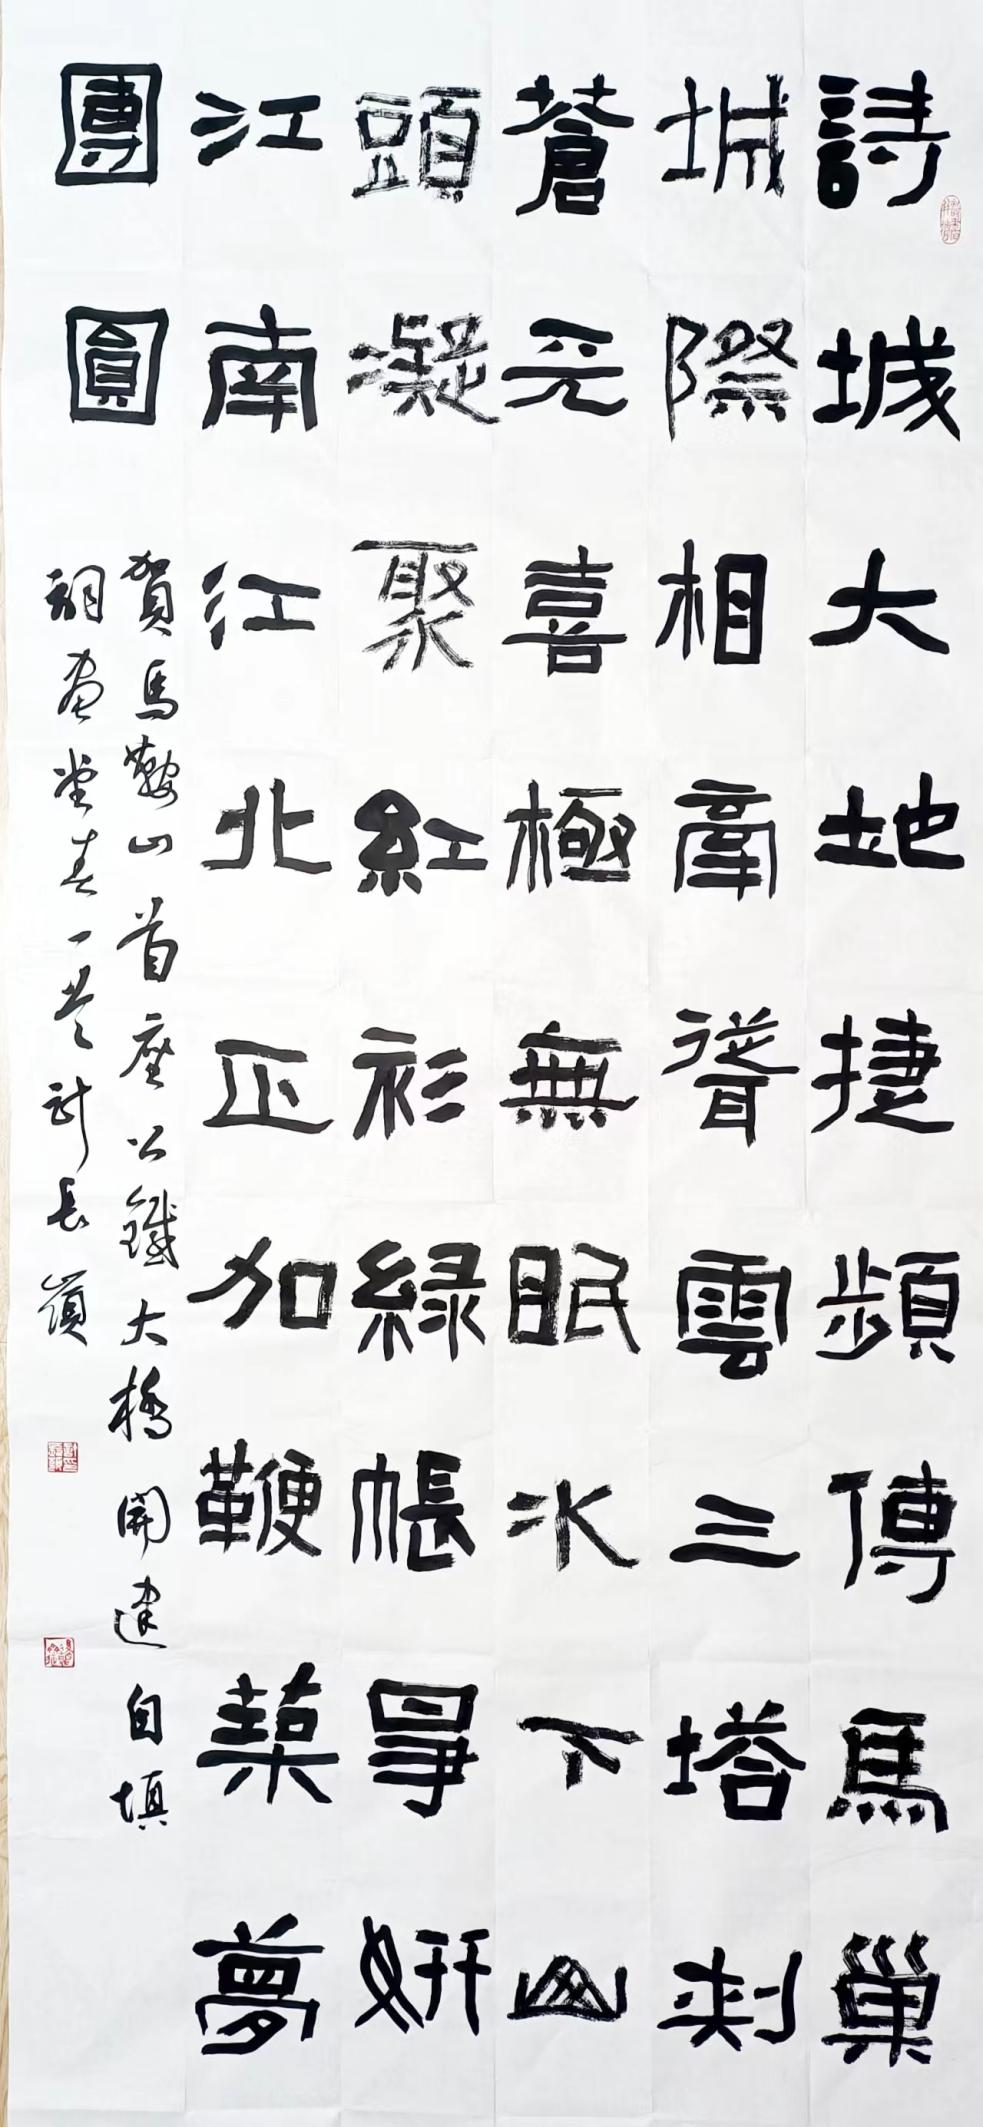 詩城大地捷頻傳馬巢
城際相牽聳雲三塔刺
蒼天喜極無眠水下山
頭凝聚紅衫綠帳爭妍
江南江北正加鞭築夢
團圓
賀馬鞍山首座公鐵大橋開建自填
詞畫堂春一 計長嶺